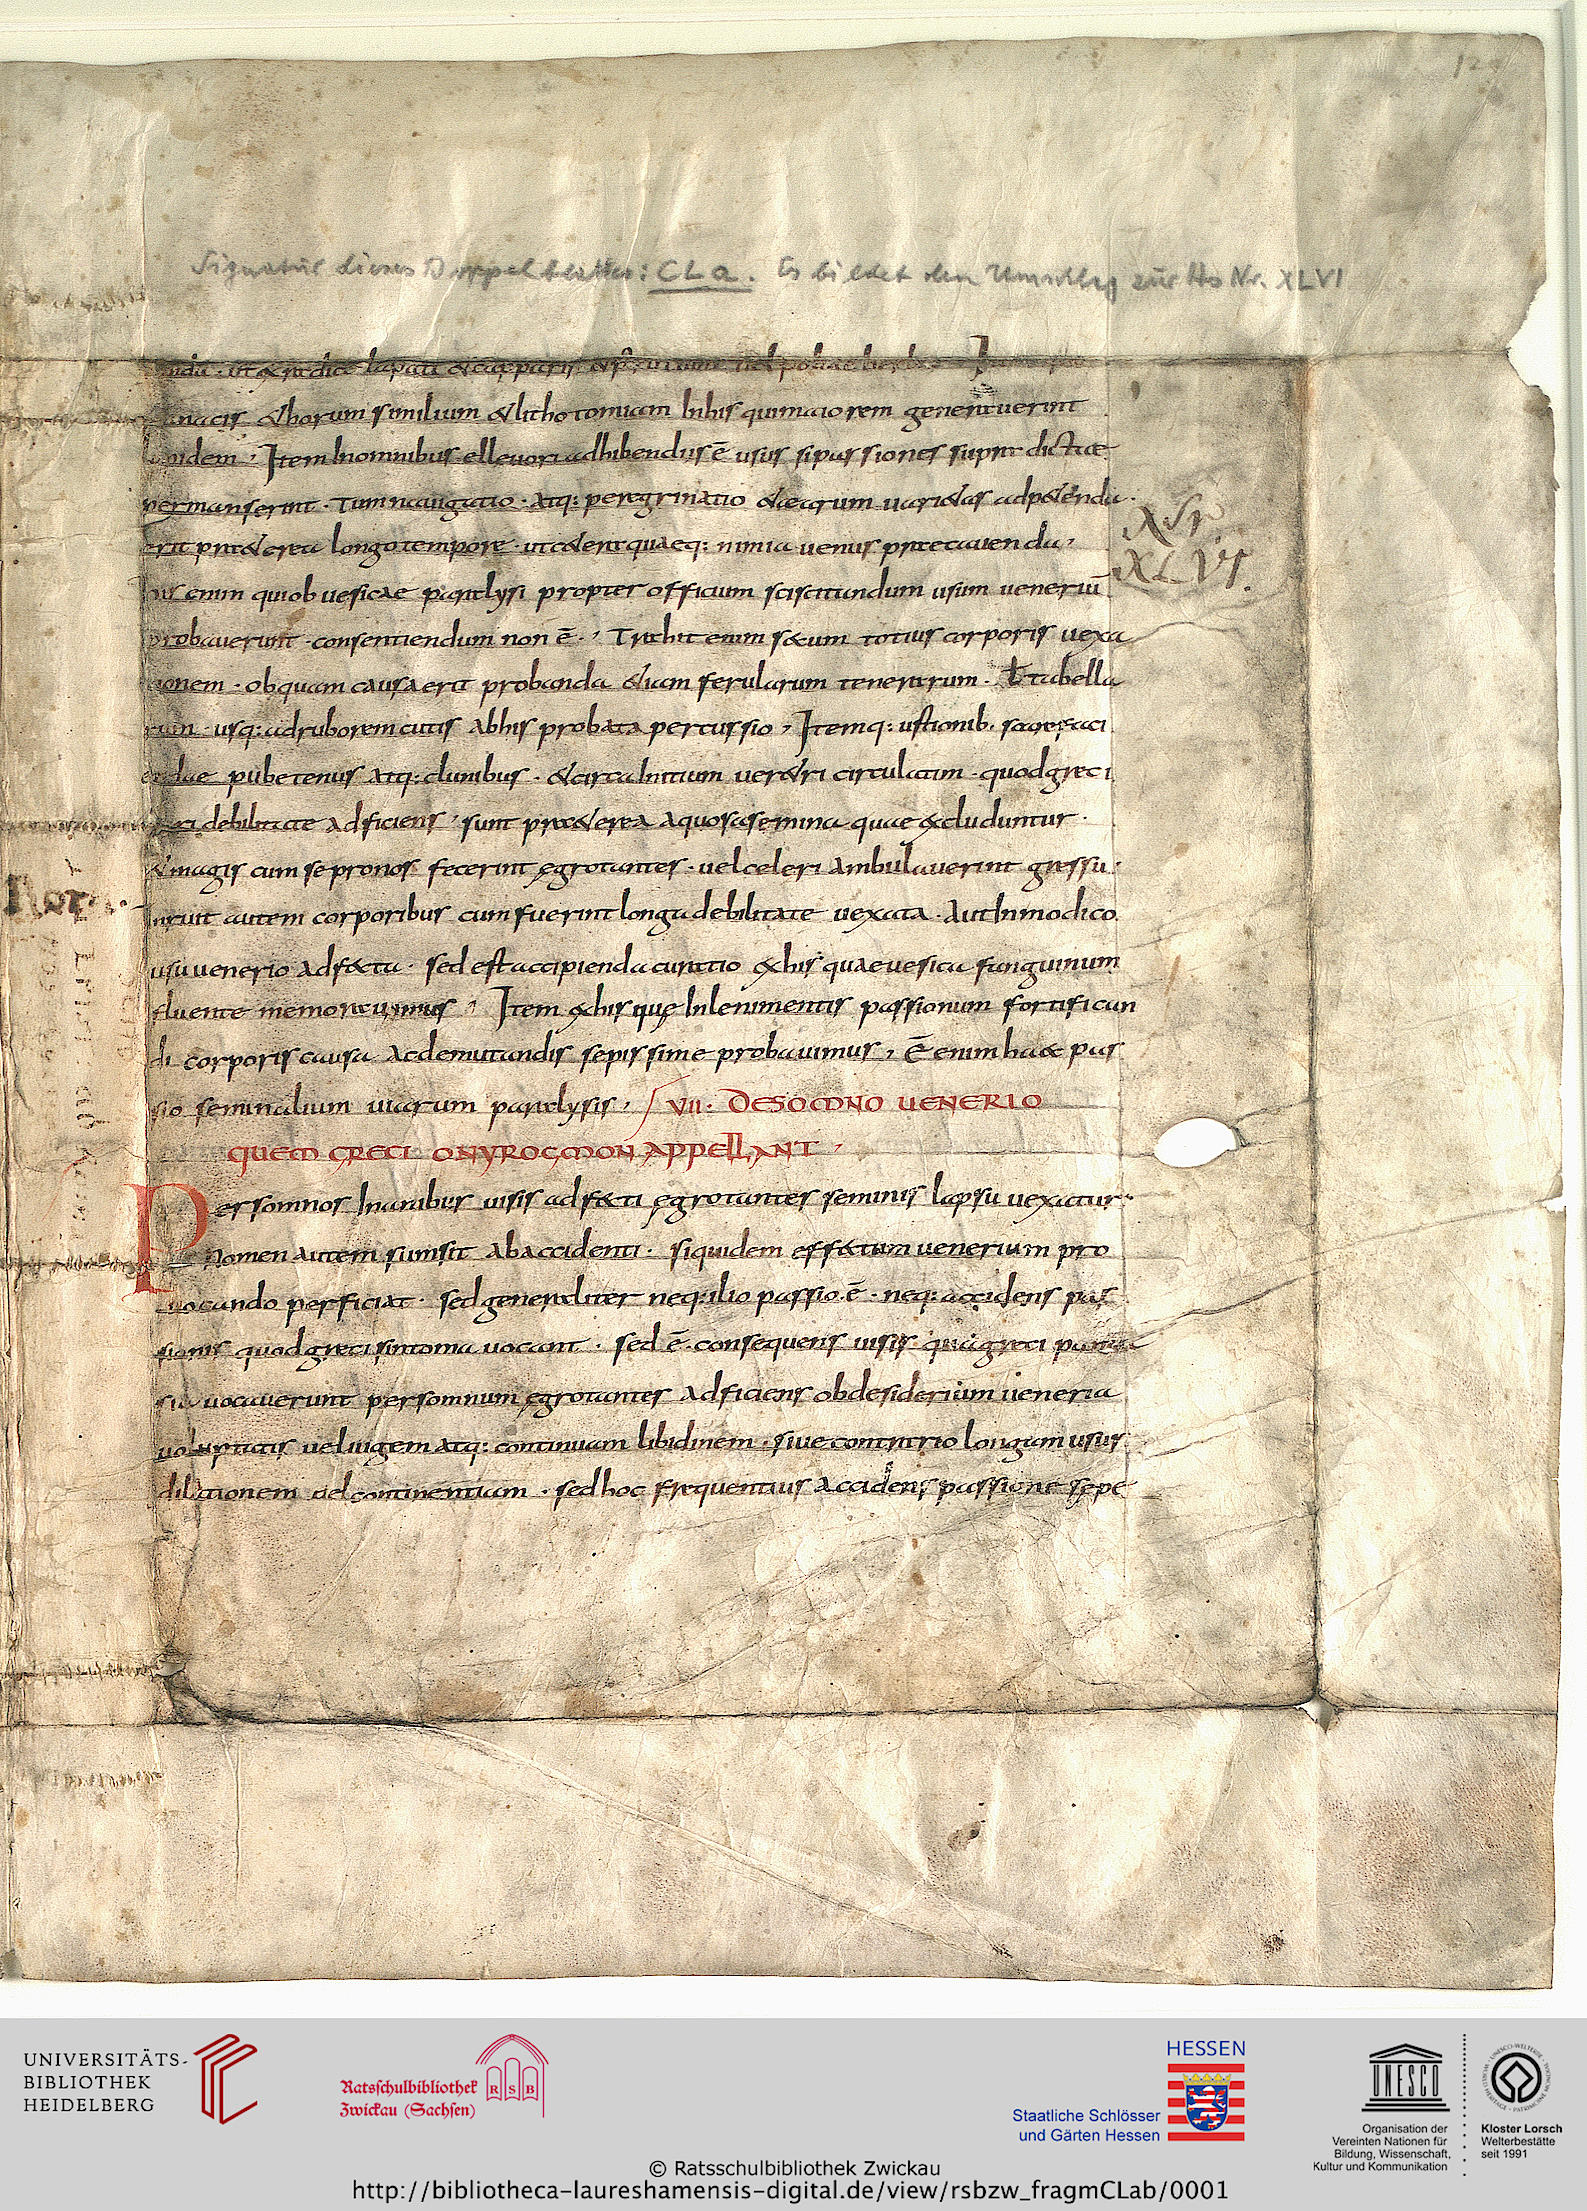 Signatur dieses Doppelblattes: CLa. Es bildet den Umschlag zur Hs Nr. XLVI
ut & radice lapati & capparis uel poliae herbe
panacis & horum similium & lithotomiam In his qui maiorem generauerint
lapidem, Item In omnibus ellevori adhibendus ē usus si passiones supra dictae
permanserint · Tum nauigatio · atq: peregrinatio & aquarum uari&as adp&enda ·
erit pr&erea longo tempore · ut c&era quaeq: nimia uenus praecauenda,
his enim qui ob uesicae paralysi propter officium sciscitandum usum ueneriū
probauerunt · consentiendum non ē ·, Trahit enim s&um totius corporis uexa
tionem · ob quam causa erit probanda &iam ferularum tenerarum · ł tabella
rum · usq: ad ruborem cutis ab his probata percussio, Itemq: ustionib. sacrefaci
endae pube tenus atq: clunibus · & circa Initium uer&ri circulatim · quod greci
debilitate adficiens, sunt pr&erea aquosa semina quae excluduntur ·
& magis cum se pronos fecerint ęgrotantes · uel celeri ambulauerint gressu ·
Inruit autem corporibus cum fuerint longa debilitate uexata · Aut Inmodico
usu uenerio adf&ta · sed est accipienda curatio &his quae uesica sanguinum
fluente memorauimus, Item &his quę In lenimentis passionum fortifican
di corporis causa ac demutandis sepissime probauimus, ē enim haec pas
sio seminalium uiarum paralysis, VII · DE SOMNO UENERIO
QUEM GRECI ONYROGMON APPELLANT,
Per somnos Inanibus uisis adf&ti ęgrotantes seminis lapsu uexatur ·
Nomen autem sumsit ab accidenti · siquidem eff&tum uenerium pro
uocando perficiat · sed generaliter neq: ilio passio ē · neq: accidens pas
sionis quod greci sintoma uocant · sed ē consequens uisis · quā greci panta
sia uocauerunt per somnum ęgrotantes adficiens ob desiderium ueneria
uoluptatis uel iugem atq: continuam libidinem · siue contrario longam usus
dilationem uel continentiam · sed hoc frequentius accidens passione sepe
XLVI.
UNIVERSITÄTS-
BIBLIOTHEK
HEIDELBERG
Ratsschulbibliothek
Zwickau (Sachsen)
RSB
HESSEN
Staatliche Schlösser
und Gärten Hessen
UNESCO
Organisation der
Vereinten Nationen für
Bildung, Wissenschaft,
Kultur und Kommunikation
Kloster Lorsch
Welterbestätte
seit 1991
© Ratsschulbibliothek Zwickau
http://bibliotheca-laureshamensis-digital.de/view/rsbzw_fragmCLab/0001